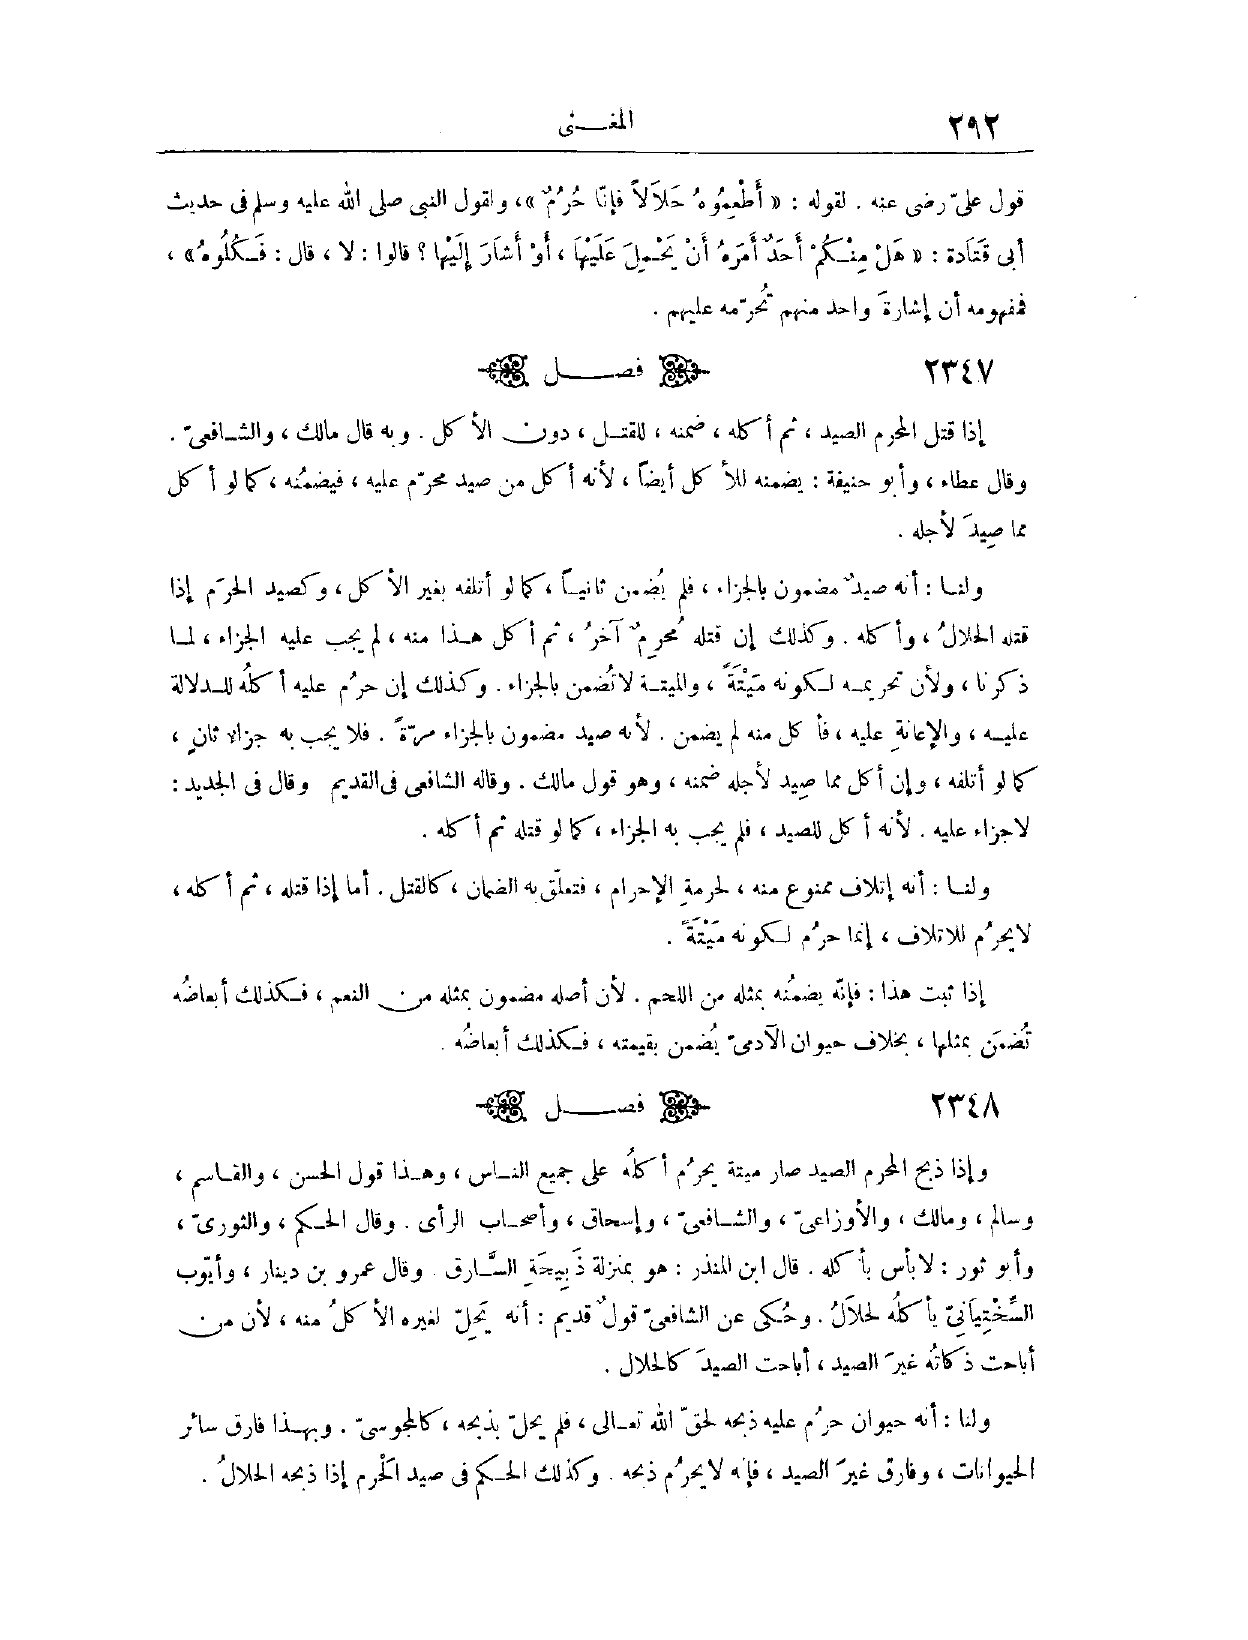 ٢٩٢
المغـــنى
قول علىّ رضى عنه . لقوله : « أَطْعِمُوهُ حَلَالاً فإنّا حُرُمٌ »، ولقول النبى صلى الله عليه وسلم فى حديث
أبى قَتَادة : « هَلْ مِنْـكُمْ أَحَدٌ أَمَرَهُ أَنْ يَحْـمِلَ عَلَيْهَا ، أَوْ أَشَارَ إِلَيْهَا ؟ قالوا : لا ، قال : فَـكُلُوهُ » ،
فمفهومه أن إشارةَ واحد منهم تُحرّمه عليهم .
٢٣٤٧
فصــــل
إذا قتل المحرم الصيد ، ثم أكله ، ضمنه ، للقتـل ، دون الأكل . وبه قال مالك ، والشـافعىّ .
وقال عطاء ، وأبو حنيفة : يضمنه للأكل أيضاً ، لأنه أكل من صيد محرّم عليه ، فيضمُنه ، كما لو أكل
مما صِيدَ لأجله .
ولنـا : أنه صيدٌ مضمون بالجزاء ، فلم يُضمن ثانيـاً ، كما لو أتلفه بغير الأكل ، وكصيد الحرَم إذا
قتله الحلالُ ، وأكله . وكذلك إن قتله مُحرِمٌ آخرُ ، ثم أكل هـذا منه ، لم يجب عليه الجزاء ، لمـا
ذكرنا ، ولأن تحريمـه لـكونه مَيْتَةً ، والميتـة لاتُضمن بالجزاء . وكذلك إن حرُم عليه أكلُه للـدلالة
عليـه ، والإعانةِ عليه ، فأكل منه لم يضمن . لأنه صيد مضمون بالجزاء مرّةً . فلا يجب به جزاء ثانٍ ،
كما لو أتلفه ، وإن أكل مما صِيد لأجله ضمنه ، وهو قول مالك . وقاله الشافعى فى القديم وقال فى الجديد :
لاجزاء عليه . لأنه أكل للصيد ، فلم يجب به الجزاء ، كما لو قتله ثم أكله .
ولنـا : أنه إتلاف ممنوع منه ، لحرمةِ الإحرام ، فتعلّق به الضمان ، كالقتل . أما إذا قتله ، ثم أكله ،
لايحرُم للاتلاف ، إنما حرُم لـكونه مَيْتَةً .
إذا ثبت هذا : فإنّه يضمُنه بمثله من اللحم . لأن أصله مضمون بمثله من النعم ، فـكذلك أبعاضُه
تُضمَن بمثلها ، بخلاف حيوان الآدمىّ يُضمن بقيمته ، فـكذلك أبعاضُه .
٢٣٤٨
فصــــل
وإذا ذبح المحرم الصيد صار ميتة يحرُم أكلُه على جميع النـاس ، وهـذا قول الحسن ، والقـاسم ،
وسالم ، ومالك ، والأوزاعىّ ، والشـافعىّ ، وإسحاق ، وأصحـاب الرأى . وقال الحـكم ، والثورىّ ،
وأبو ثور : لابأس بأكله . قال ابن المنذر : هو بمنزلة ذَبِيحَةِ السَّـارق . وقال عمرو بن دينار ، وأيّوب
السَّخْتِيَانِىّ يأكلُه لحلاَلُ . وحُكى عن الشافعىّ قولٌ قديم : أنه يَحِلّ لغيره الأكلُ منه ، لأن من
أباحت ذكاتُه غيرَ الصيد ، أباحت الصيدَ كالحلال .
ولنا : أنه حيوان حرُم عليه ذبحه لحقّ الله تعـالى ، فلم يحلّ بذبحه ، كالمجوسىّ . وبهـذا فارق سائر
الحيوانات ، وفارق غيرَ الصيد ، فإنه لايحرُم ذبحه . وكذلك الحـكم فى صيد الحرم إذا ذبحه الحلالُ .